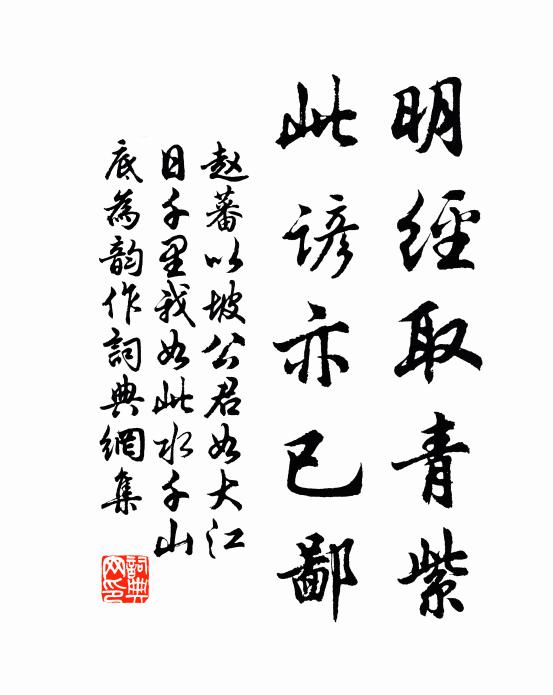 明經取青紫
此諺亦已鄙
赵蕃以坡公君如大江
日千里我如此水千山
底為韵作詞典網集
詞典
网印